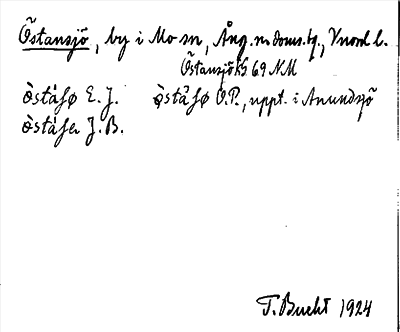 Östansjö, by i Mo sn, Ång. n. doms. tg., Vnorrl. l.
Östansjö KS 69 NM
òståʃø E. J. òståʃø O.P., uppt. i Anundsjö
òståʃa J. B.
T. Bucht 1924